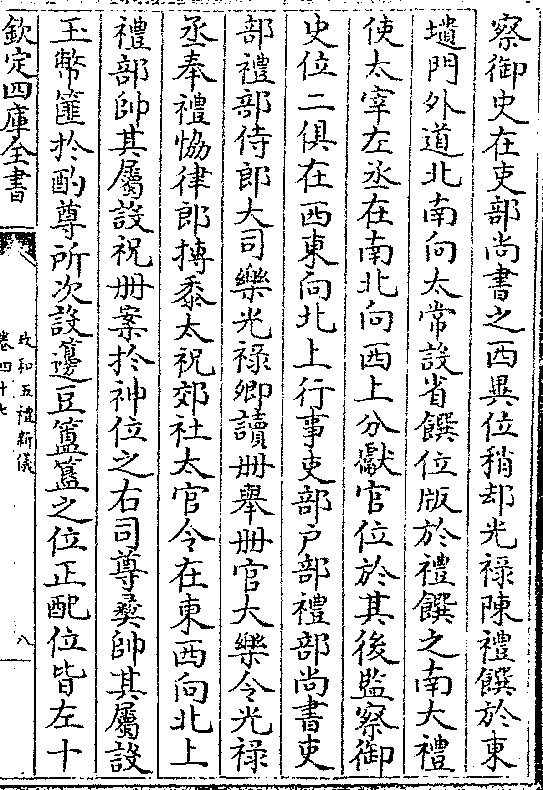 察御史在吏部尚書之西異位稍却光祿陳禮饌於東
壝門外道北南向太常設省饌位版於禮饌之南大禮
使太宰左丞在南北向西上分獻官位於其後監察御
史位二俱在西東向北上行事吏部戶部禮部尚書吏
部禮部侍郎大司樂光祿卿讀册舉册官大樂令光祿
丞奉禮協律郎摶黍太祝郊社太官令在東西向北上
禮部帥其屬設祝册案於神位之右司尊彞帥其屬設
玉幣篚於酌尊所次設籩豆簠簋之位正配位皆左十
欽定四庫全書
政和五禮新儀
卷四十七
八